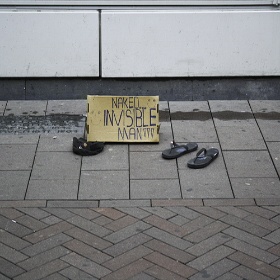 NAKED...
INVISIBLE
MAN!!!